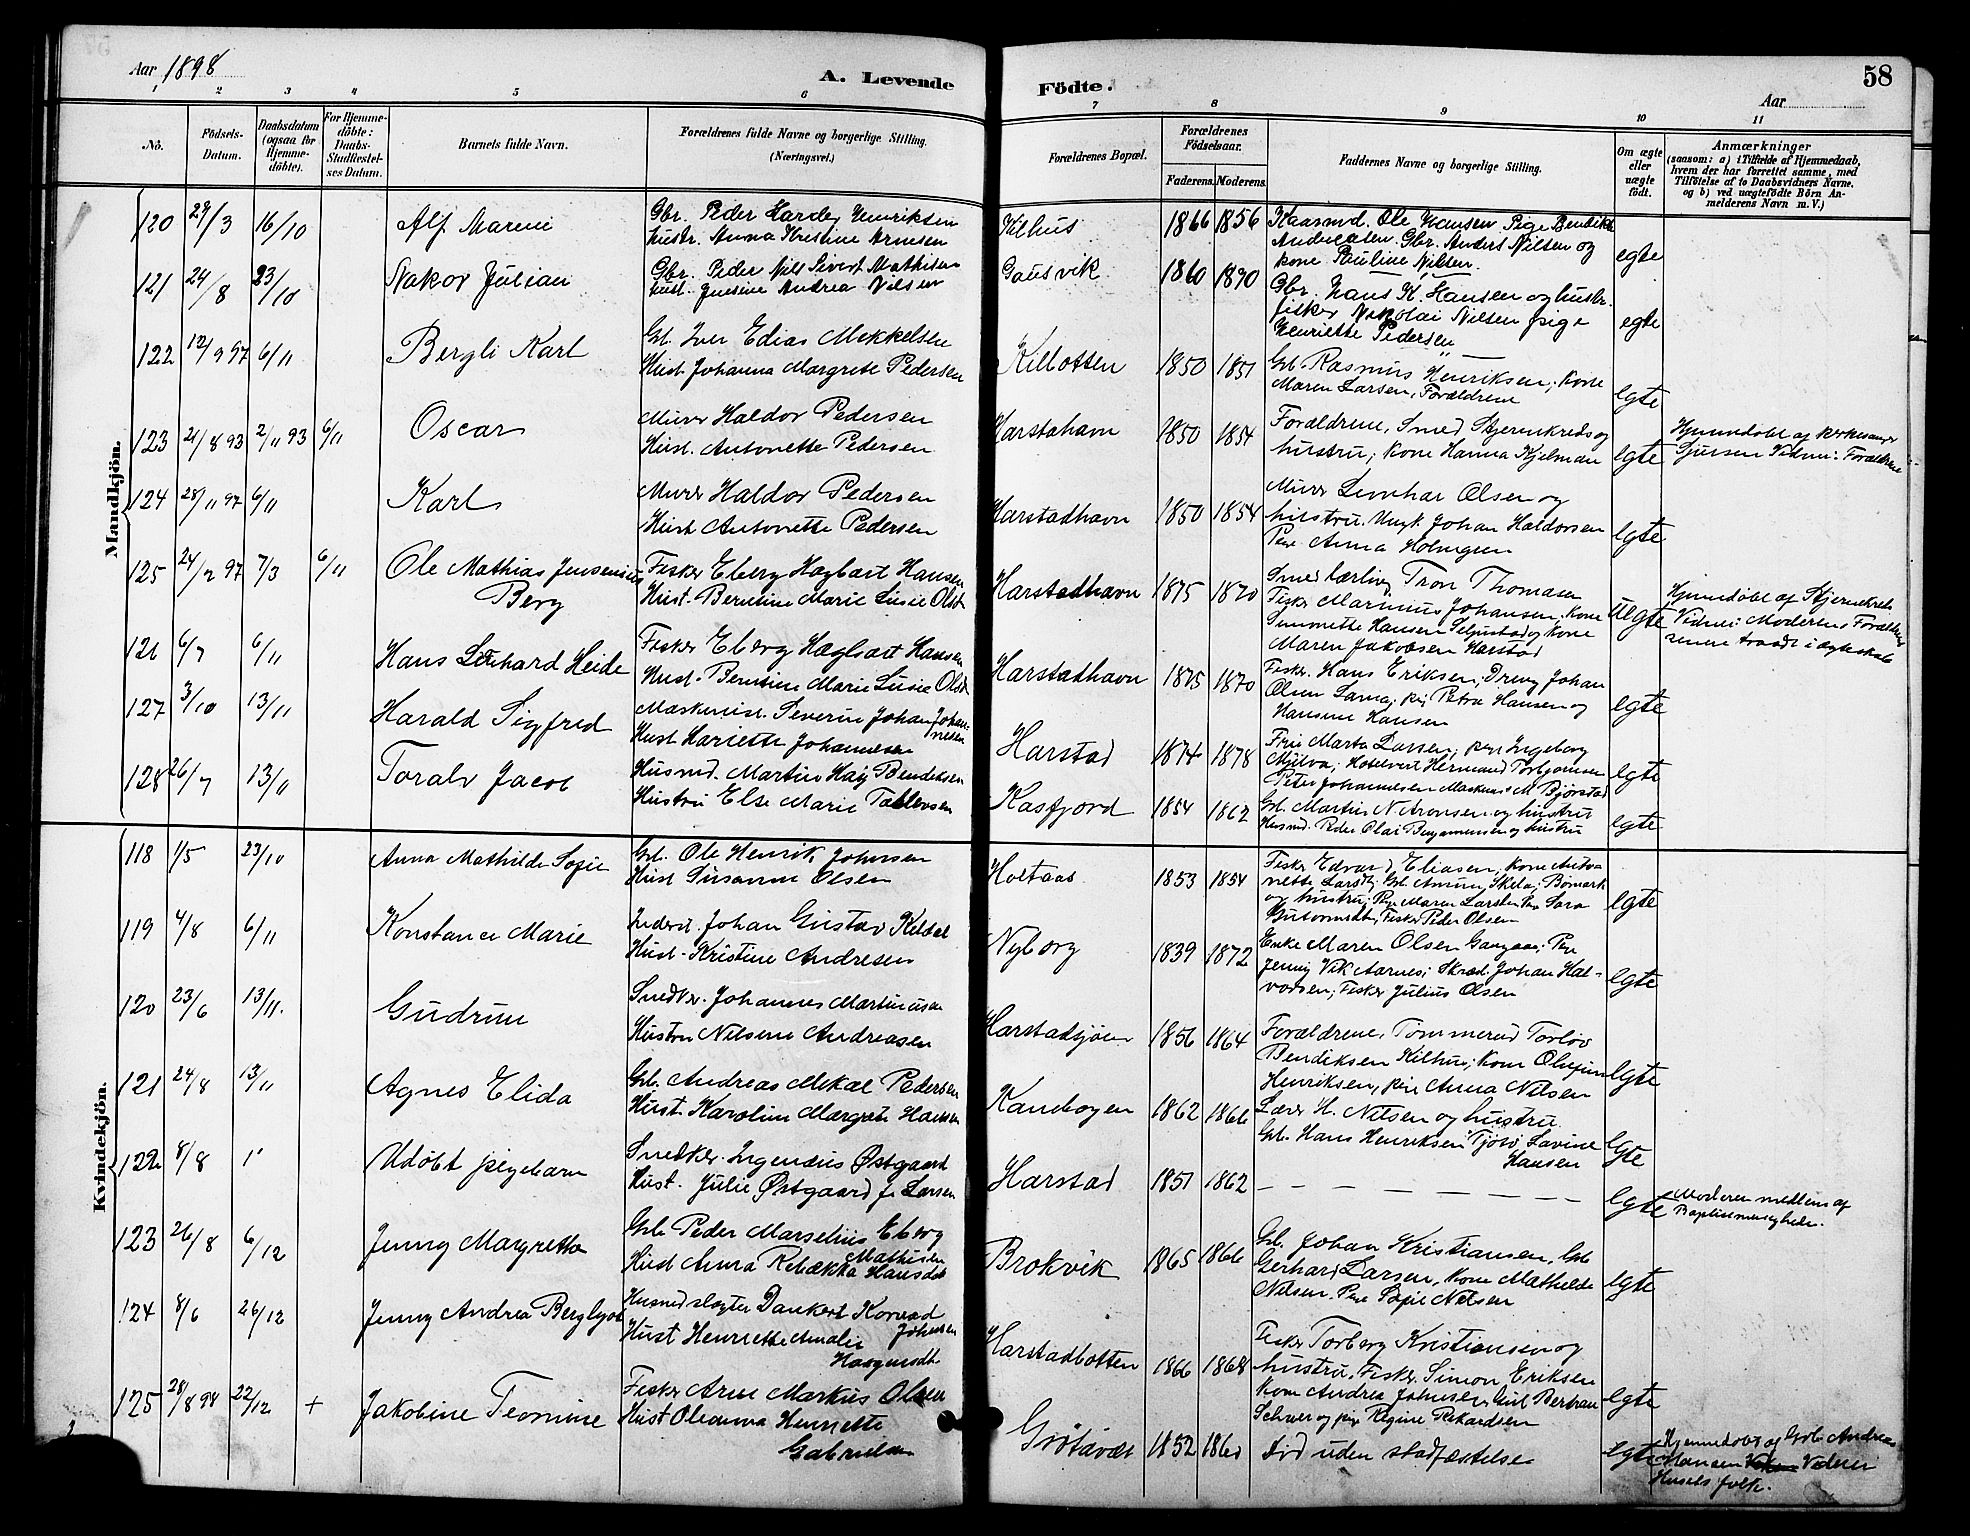 Aar 1898
A. Levende Födte.
58
Aar
1 2 3 4 5 6 7 8 9 10 11
No.
Födsels-Datum.
Daabsdatum (ogsaa for Hjemme-døbte).
For Hjemme-døbte: Daabs-Stadfæstel-ses Datum.
Barnets fulde Navn.
Forældrenes fulde Navne og borgerlige Stilling. (Næringsvei.)
Forældrenes Bopæl.
Forældrenes Fødselsaar.
Faderens. Moderens.
Faddernes Navne og borgerlige Stilling.
Om ægte eller uægte født.
Anmærkninger
(saasom: a) i Tilfælde af Hjemmedaab, hvem der har forrettet samme, med Tilføielse af to Daabsvidners Navne, og b) ved uægtefødte Börn Anmelderens Navn m. V.)
Mandkjön.
120 29/3 16/10 Alf Mareni
Gbr. Peder Hardey Henriksen
hustr. Anna Kristine Arnesen
Kilhus 1866 1856
Kaarmd. Ole Hansen. Pige Bendikt
Andreasen. Gbr. Anders Nilsen og
kone Pauline Nilsen. egte
121 24/8 23/10 Nakor Julian
Gbr. Peder Nill Sivert Mathisen
hust. Jensine Andrea Nilsen
Gausvik 1860 1890
Gbr. Hans K. Hansen og hustr.
fisker Nikolai Nilsen pige
Henriette Pedersen egte
122 12/9 97 6/11 Bergli Karl
Gb. Iver Edias Mikkelsen
Hust. Johanna Margrete Pedersen
Kilbotten 1850 1851
Gb. Rasmus Henriksen; Kone
Maren Larsen, Forældrene egte
123 21/8 93 2/11 93 6/11 Oscar
Murer Haldor Pedersen
Hust. Antonette Pedersen
Harstahavn 1850 1854
Forældrene, Smed Stjernkreds og
hustru; kone Hanna Kjelman egte
Hjemmedøbt af Kirkesanger
Sjursen Vidner: Forældrene
124 28/11 97 6/11 Karl
Murer Haldor Pedersen
Hust Antonette Pedersen
Harstadhavn 1850 1854
Murer Lenhar Olsen og
hustru. Ungk. Johan Haldorsen
Pige Anna Holmgren egte
125 24/2 97 7/3 6/11 Ole Mathias Jensenius
Berg
Fisker Eberg Hagbart Hansen
Hust. Berntine Marie Lusie Olsdr
Harstadhavn 1875 1870
Smedlærling Tron Thomasen
Fisker Marinius Johansen, Kone
Simonette Hansen Selgnstad og kone
Maren Jakobsen Harstad uegte
Hjemmedøbt af Stjernekreds
Vidner: Moderen. Forældrene
senere traadt i ægteskab
126 6/7 6/11 Hans Leonhard Heide
Fisker Eberg Hagbart Hansen
Hust. Berntine Marie Lusie Olsdr
Harstadhavn 1875 1870
Fisker Hans Eriksen; Dreng Johan
Olsen Sama; pig Petra Hansen og
Hansine Hansen egte
127 3/10 13/11 Harald Sigfred
Maskinist. Severin Johan Johan-
nesen
Hust Hariette Johannesen
Harstad 1874 1878
Frue Marta Larsen; pige Ingeborg
Mjelva; Hotelvert Hermand Torbjørnsen
Peter Johannesen Maskinist M. Bjørstad egte
128 26/7 13/11 Toralv Jacob
Husmd. Martin Høy Bendiksen
Hustru Else Marie Tollevsen
Kasfjord 1854 1862
Gb. Martin N. Aronsen og hustru
Husmd. Peder Olai Benjaminsen og hustru egte
Kvindekjön.
118 1/5 23/10 Anna Mathilde Sofie
Gb. Ole Henrik Johnsen
Hust Susanne Olsen
Holtaas 1853 1854
Fisker Edvard Eliasen, Kone Anto-
nette Larsdtr; Gb. Skela; Bomark
og hustru; Pige Maren Larsten Pige Sara
Guttormsdtr, Fisker Peder Olsen egte
119 4/8 6/11 Konstance Marie
Inderst. Johan Gustav Keldal
Hust. Kristine Andresen
Nyborg 1839 1872
Enke Maren Olsen Gangaas; Pige
Jenny Vik Aarnes; Skræd. Johan Hal-
vorsen; Fisker Julius Olsen egte
120 23/6 13/11. Gudrun
Snedker. Johannes Martinusen
Hustru Nilsine Andreasen
Harstadsjøen 1856 1864
Forældrene, Tømmermd Torlov
Bendiksen Kilhus; Kone
Henriksen, pige Anna Nilsen egte
121 24/8 13/11 Agnes Elida
Gb. Andreas Mikal Pedersen
Hust. Karoline Margrete Hansen
Kanebogen 1862 1866
Lærer H. Nilsen og hustru.
Gb. Hans Henriksen Tjøsv Lavine
Hansen egte
122 8/8 1' Udøbt pigebarn
Snedker. Ingenius Østgaard
Hust. Julie Østgaard f. Larsen
Harstad 1851 1862
— — — — — — — — egte
Moderen medlem af
Baptistmenighed.
123 26/8 6/12 Jenny Margretha
Gb. Peder Marselius Eberg
Mathisen
Hust Anna Rebækka Hansdtr
Brokvik 1865 1866
Gb. Johan Kristiansen, Gb.
Gerhard Larsen, Kone Mathilde
Nilsen. Pige Sofie Nilsen egte
124 8/6 26/12 Jenny Andrea Bergliot
Husmd slagter Dankert Konrad
Johnsen
Hust Henriette Amalie
Haagensdtr
Harstadbotten 1866 1868
Fisker Torberg Kristiansen og
hustru, Fisker. Simon Eriksen
Kone Andrea Johnsen, Emil Bertran
Schner og pige Regine Rikardsen egte
125 28/8 98 22/12 + Jakobine Teomine
Fisker Arne Markus Olsen
Hust Oleanna Henriette
Gabrielsen
Grøtavær 1852 1860
Død uden stadfæstelse egte
Hjemmedøbt af Gbr. Andreas
Hansen Vidner
Husets folk.